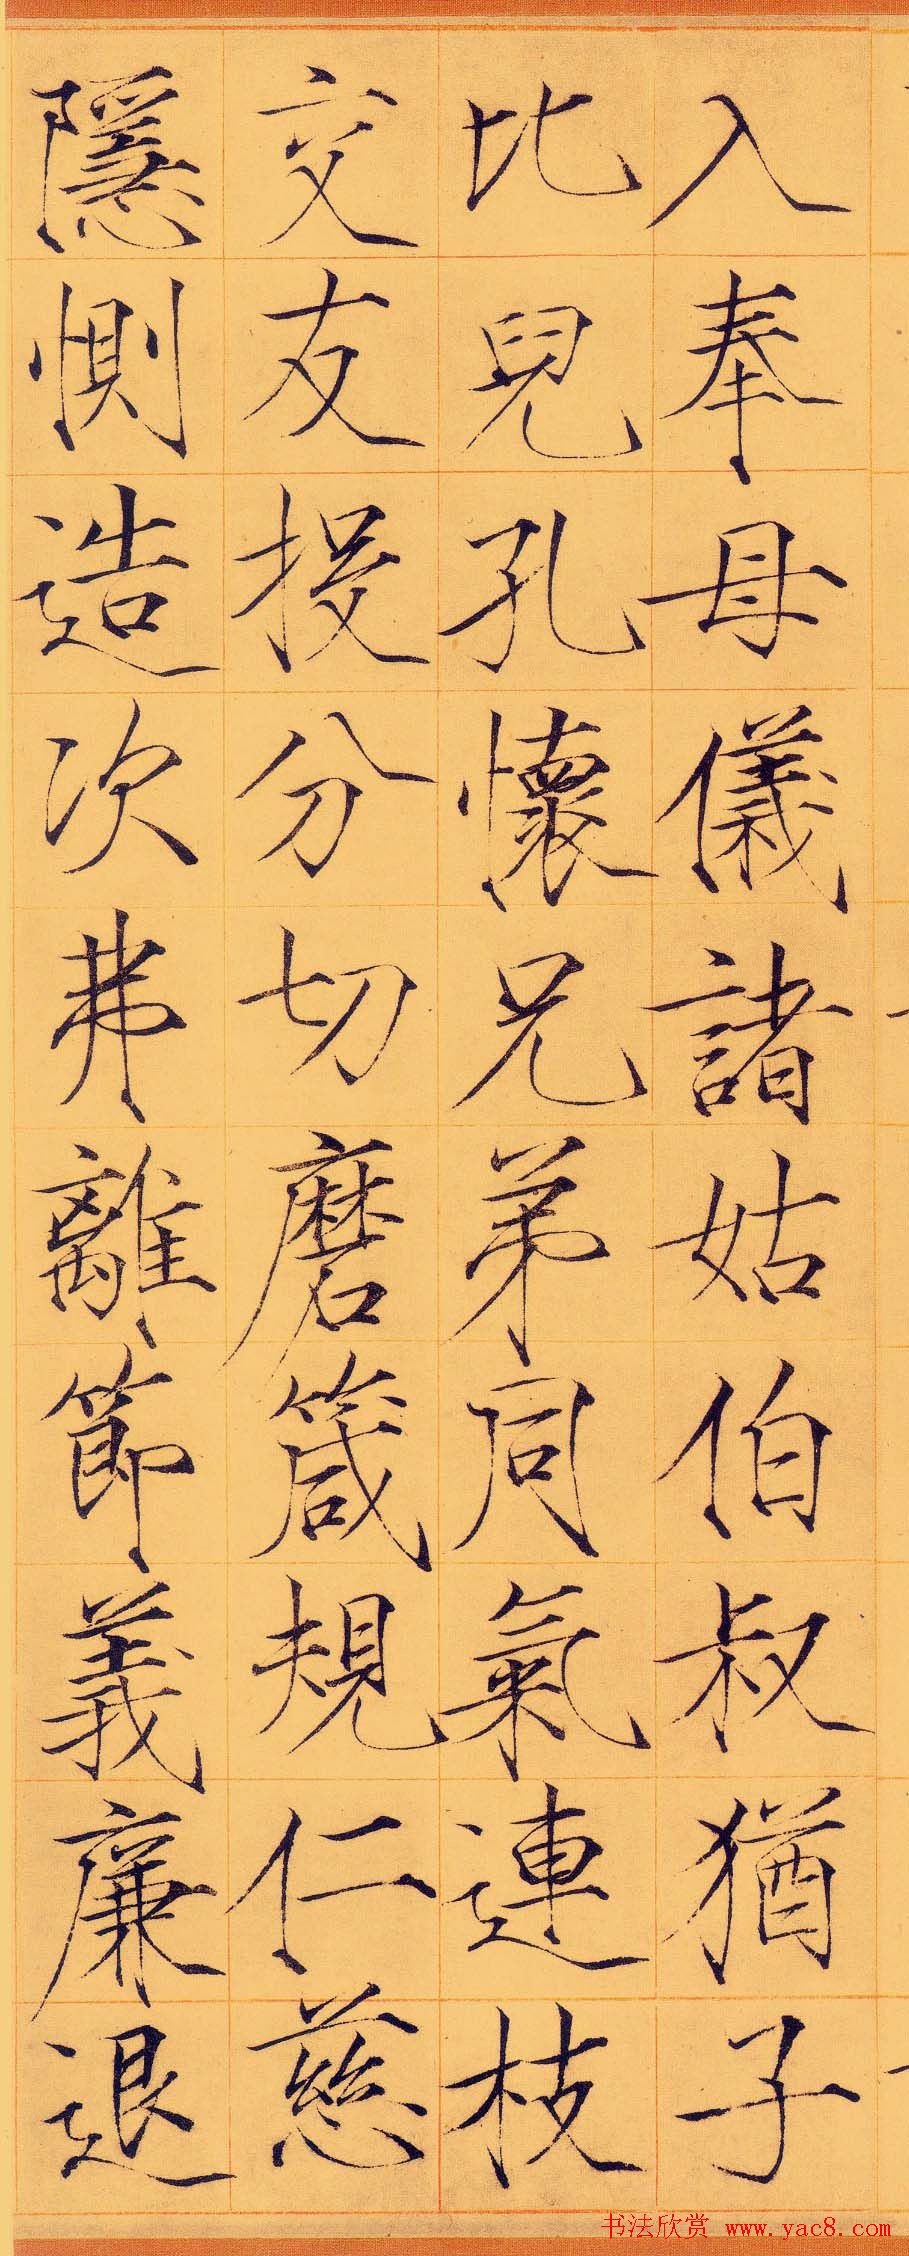 入奉母儀諸姑伯叔猶子
比兒孔懷兄弟同氣連枝
交友投分切磨箴規仁慈
隱惻造次弗離節義廉退
书法欣赏 www.yac8.com